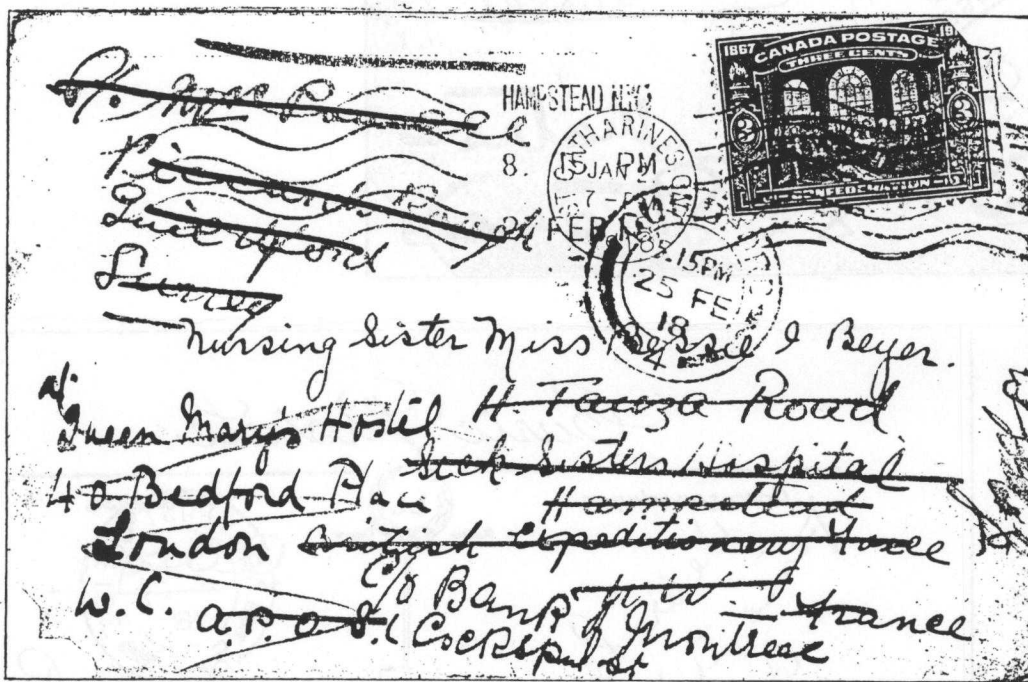 1867 CANADA POSTAGE 19
THREE CENTS
3 3
CONFEDERATION
HAMPSTEAD N.W.3
8. 15 PM
24 FEB 18
ST CATHARINES ONT
JAN 21
7 - PM
8.15PM
25 FE
18
4
Guildford
Surrey
Nursing Sister Miss Bessie I Beyer.
Queen Mary's Hostel
40 Bedford Place
London
W.C.
Road
Sick Sisters Hospital
Hampstead
British Expeditionary Force
N W
France
c/o Bank of Montreal
Cockspur St